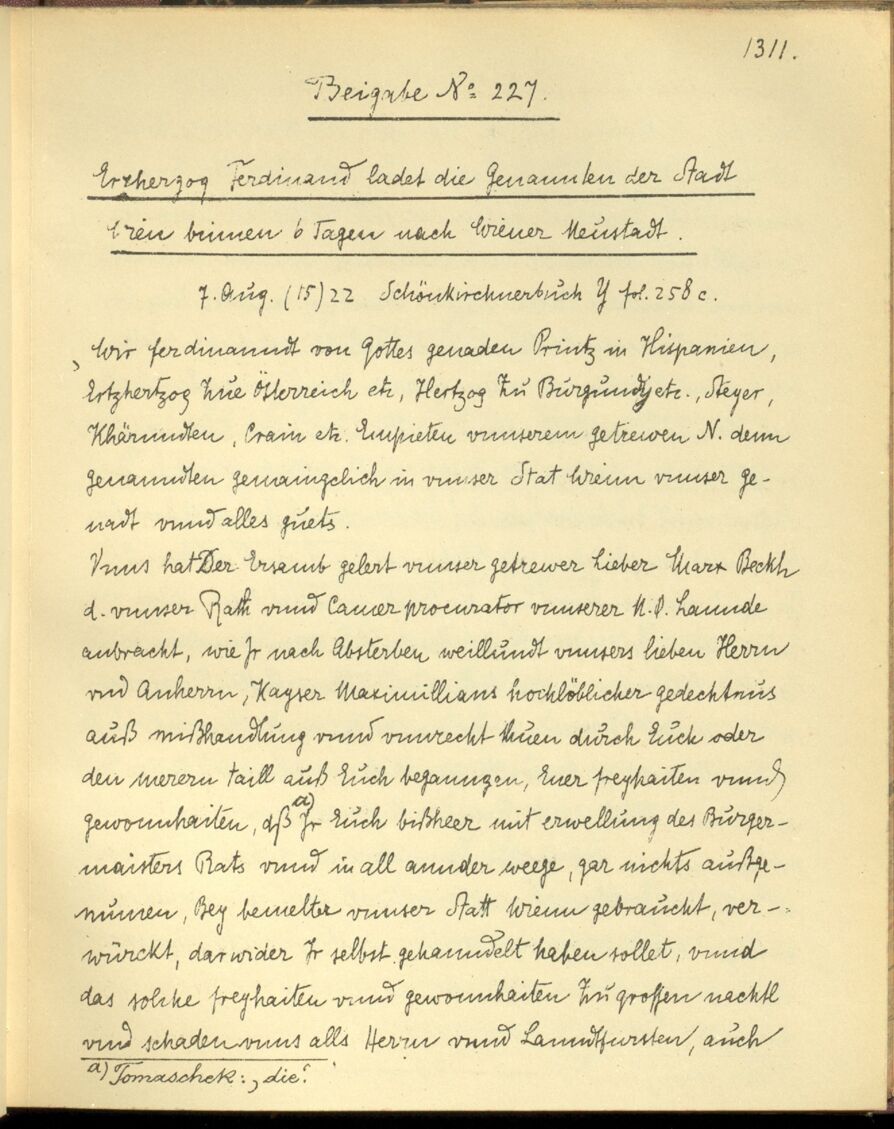 1311.
Beigabe No 227.
Erzherzog Ferdinand ladet die Genannten der Stadt
Wien binnen 6 Tagen nach Wiener Neustadt.
7. Aug. (15)22 Schönkirchnerbuch Y fol. 258 c.
„Wir ferdinanndt von Gottes genaden Printz in Hispanien,
Ertzhertzog zue Österreich etc, Hertzog zu Burgundy etc., Steyer,
Khärnndten, Crain etc. Empieten vnnserem getrewen N. denn
genanndten gemaingclich in vnnser Stat Wienn vnnser ge-
nadt vnnd alles guets.
Vnns hat Der Ersamb gelert vnnser getrewer lieber Marx Beckh
d. vnnser Rath vnnd Camer procurator vnnserer N. Ö. Lannde
anbracht, wie Jr nach Absterben weillundt vnnsers lieben Herrn
vnd Anherrn, Kayser Maximillians hochlöblicher gedechtnus
auß mißhandlung vnnd vnnrecht thuen durch Euch oder
den merern taill auß Euch beganngen, Euer freyhaiten vnnd
gewonnhaiten, dß a) Jr Euch bißheer mit erwellung des Burger-
maisters Rats vnnd in all annder weege, gar nichts außge-
numen, Bey bemelter vnnser Statt Wienn gebraucht, ver-
würckt, darwider Jr selbst gehanndelt haben sollet, vnnd
das solche freyhaiten vnnd gewonnhaiten zu grossen nachtl
vnnd schaden vnns alls Herrn vnnd Lanndtfursten, auch
a) Tomaschek: „die“.